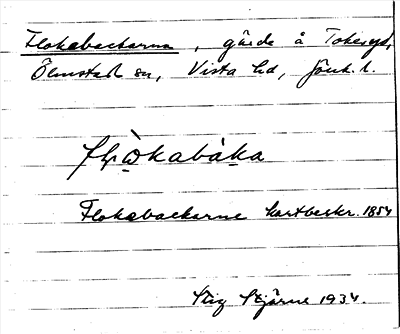 Flokabackarna, gärde å Tokeryd,
Ölmstad sn, Vista hd, Jönk. l.
Flokabackarne kartbeskr. 1854
Stig Stjärne 1934.